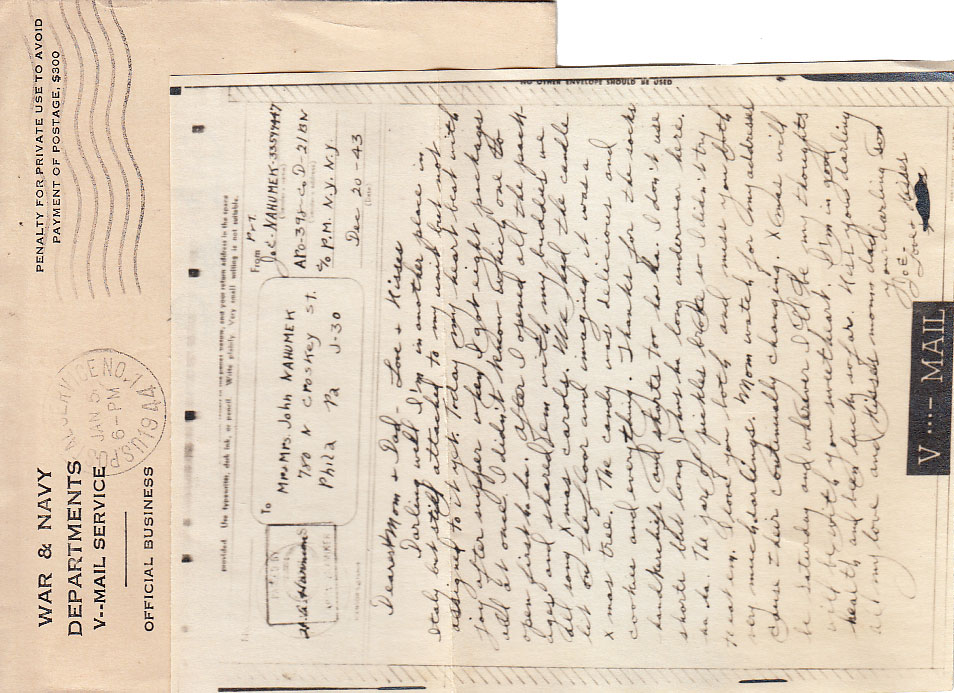 WAR & NAVY
DEPARTMENTS
V--MAIL SERVICE
OFFICIAL BUSINESS
PENALTY FOR PRIVATE USE TO AVOID
PAYMENT OF POSTAGE, $300
JAN 5
6-PM
1944
NO OTHER ENVELOPE SHOULD BE USED
Write plainly. Very small writing is not suitable.
To
Mr & Mrs. John NAHUMEK
780 N CROSKEY ST.
Phila Pa J-30
From
Pvt.
Joe-NAHUMEK-33597447
APO-398-Co D-21BN
c/o P.M. N.Y. N.Y.
Dec 20-43
(Date)
Dearest Mom & Dad- Love & Kisses
Darling well I'm in another place in
Italy but still attached to my unit but not
assigned to it yet. Today my heart beat with
joy after supper when I got eight packages
all at once I didn't know which one to
open first ha ha. After I opened all the pack-
ages and shared em with my buddies we
all sang Xmas carols. We had the candle
lit on the floor and imagined it was a
xmas tree. The candy was delicious and
cookies and everything. Thanks for the socks
handkerchiefs and shorts too ha ha. I don't use
shorts till long I use ha long underwear here.
ha ha. The jar of pickles broke so I didn't try
to eat em. I love you both and miss you both
very much darlings. Mom watch for my addresses
cause their continually changing. Xmas will
be saturday and wherever I'll be my thoughts
will be with you sweetheart. I'm in good
health and been lucky so far. Kist you darling
all my love and Kisses moms dad
Your darling son
Joe
Love & Kisses
V···– MAIL